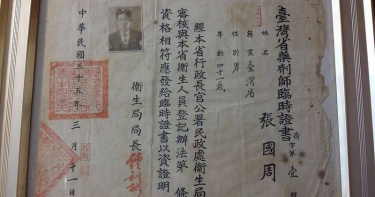 臺灣省藥劑師臨時證書
字第壹號
姓名 張國周
籍貫 臺灣省
性別 男
年齡 四十一歲
經本省行政長官公署民政處衛生局
審核與本省衛生人員登記辦法第 條
資格相符應發給臨時證書以資證明
衛生局局長
中華民國三十五年三月十一日